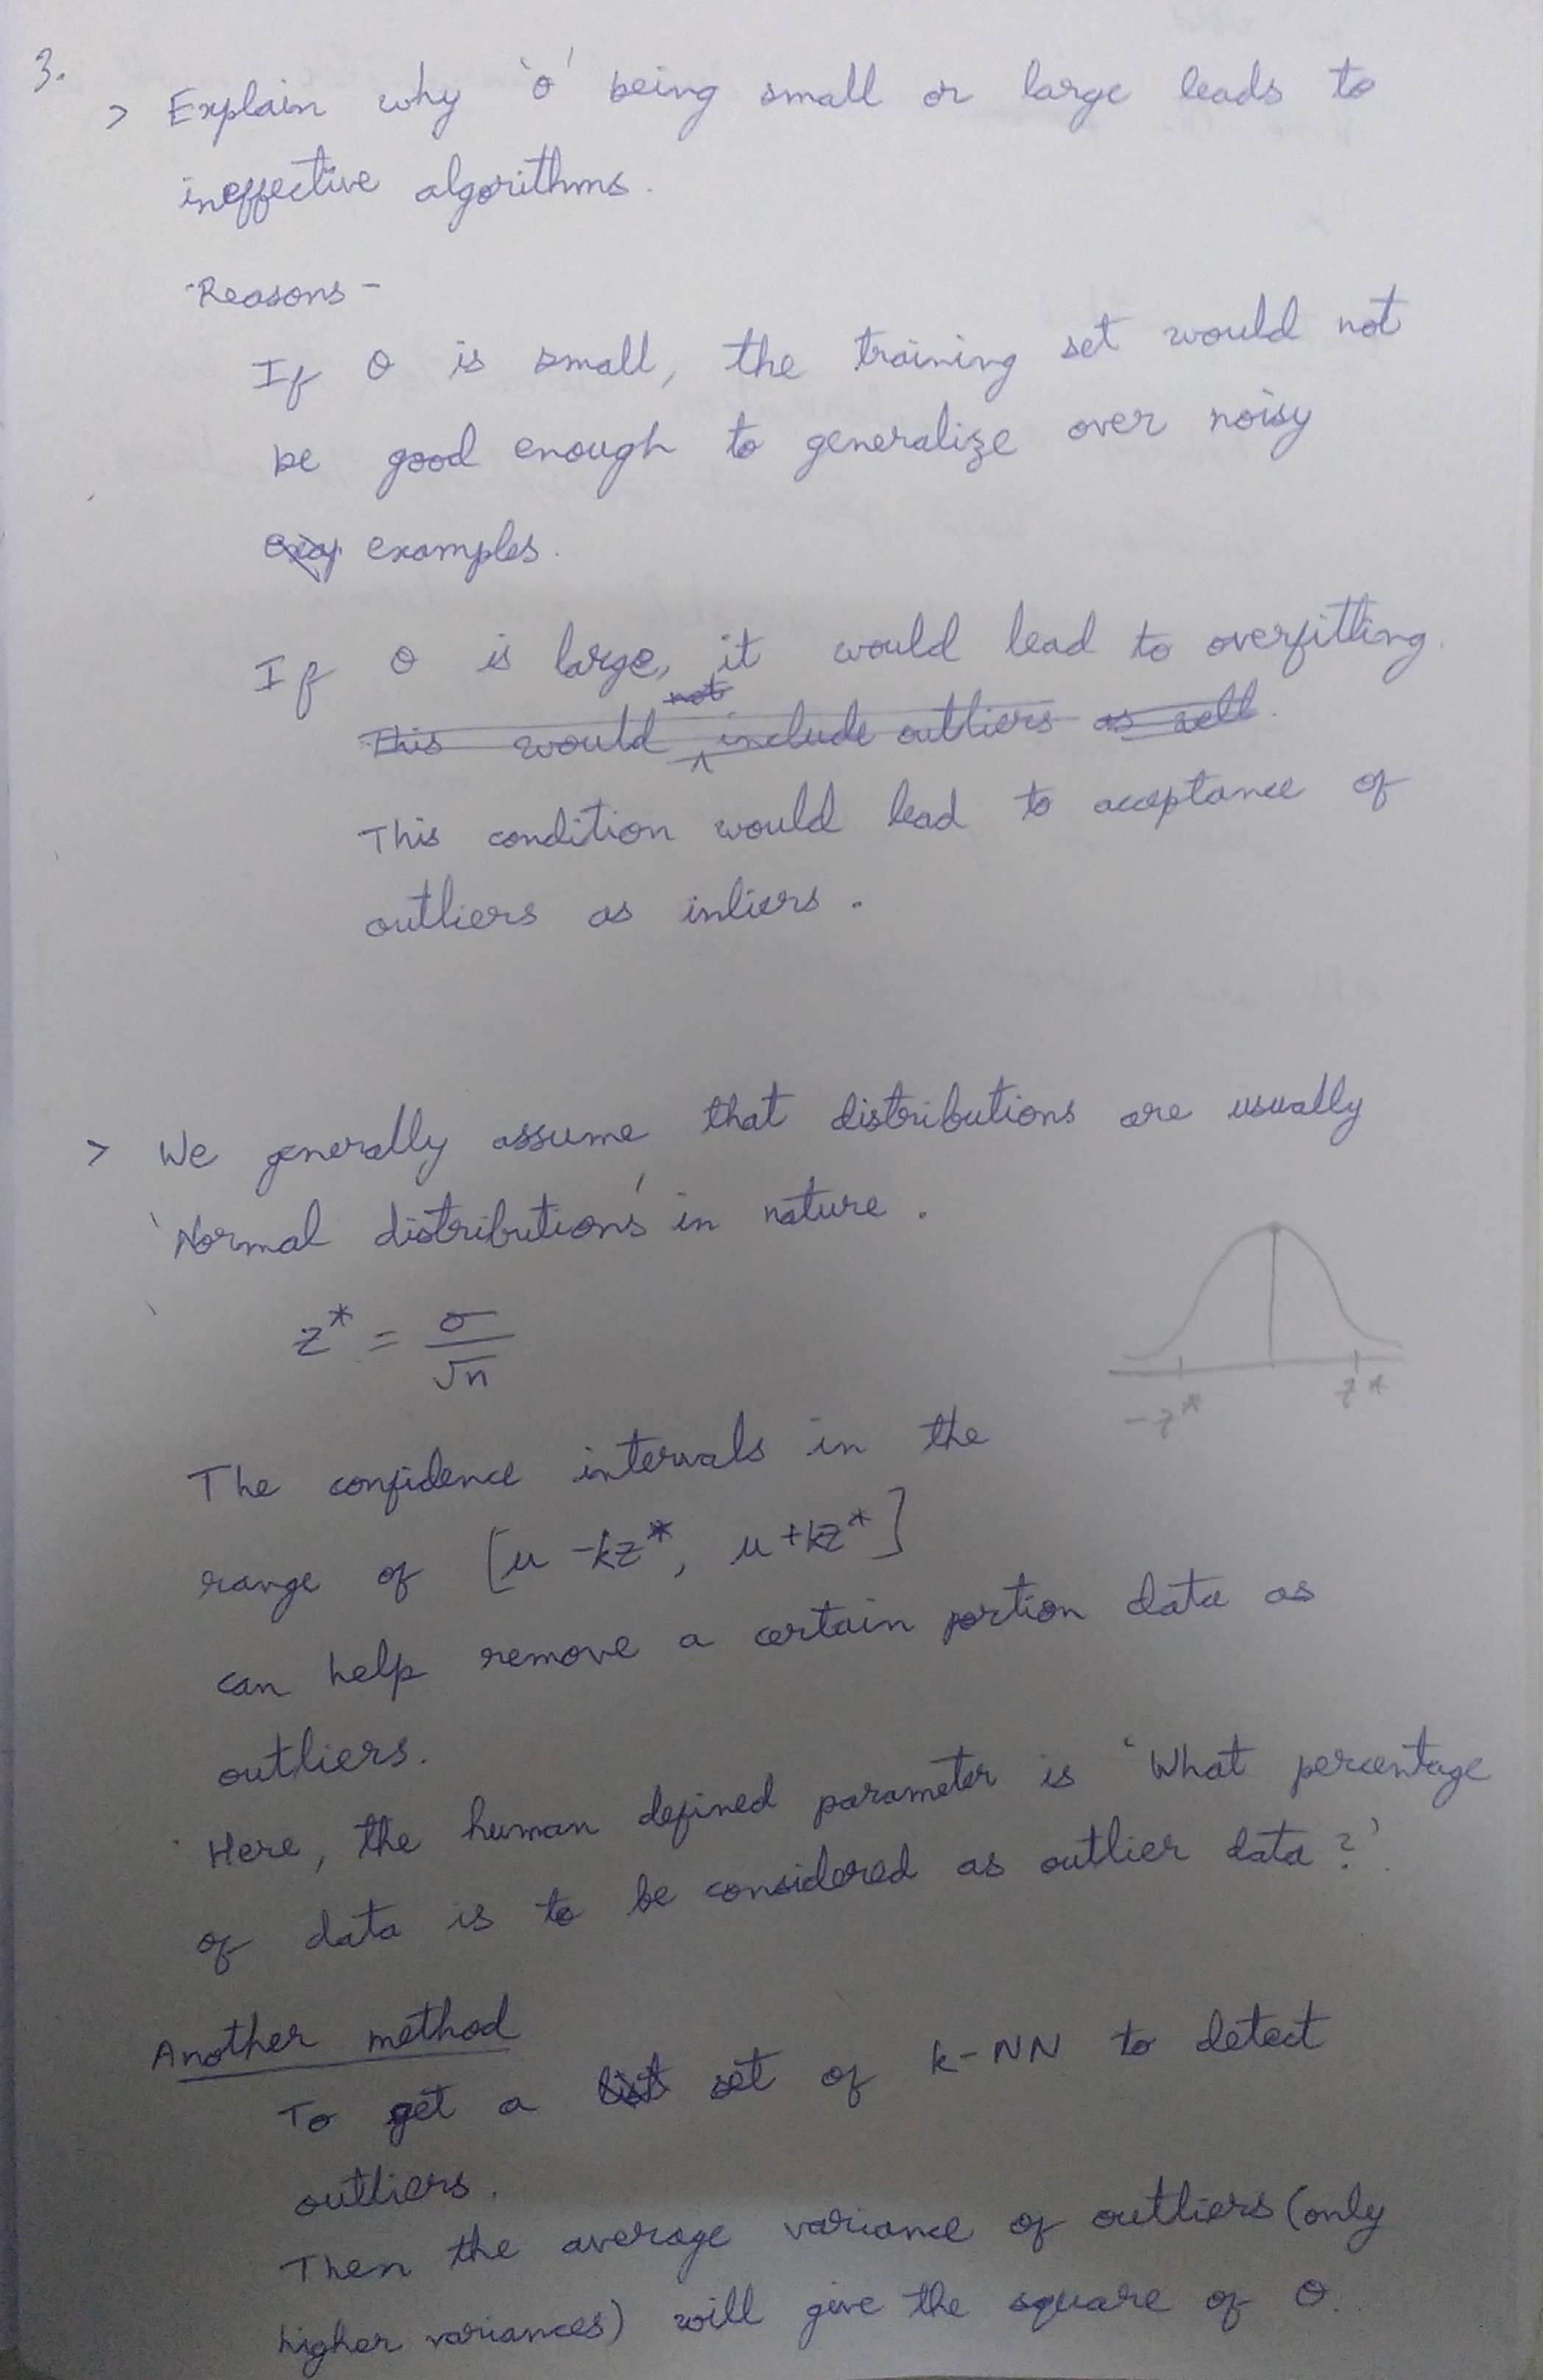 3.
> Explain why 'σ' being small or large leads to
ineffective algorithms.
Reasons -
If σ is small, the training set would not
be good enough to generalize over noisy
examples.
If σ is large, it would lead to overfitting.
This would not include outliers as well.
This condition would lead to acceptance of
outliers as inliers.
> We generally assume that distributions are usually
'Normal distributions' in nature.
z* = σ/√n
-z* z*
The confidence intervals in the
range of [μ - kz*, μ + kz*]
can help remove a certain portion data as
outliers.
Here, the human defined parameter is 'What percentage
of data is to be considered as outlier data?'
Another method
To get a list set of k-NN to detect
outliers.
Then the average variance of outliers (only
higher variances) will give the square of σ.